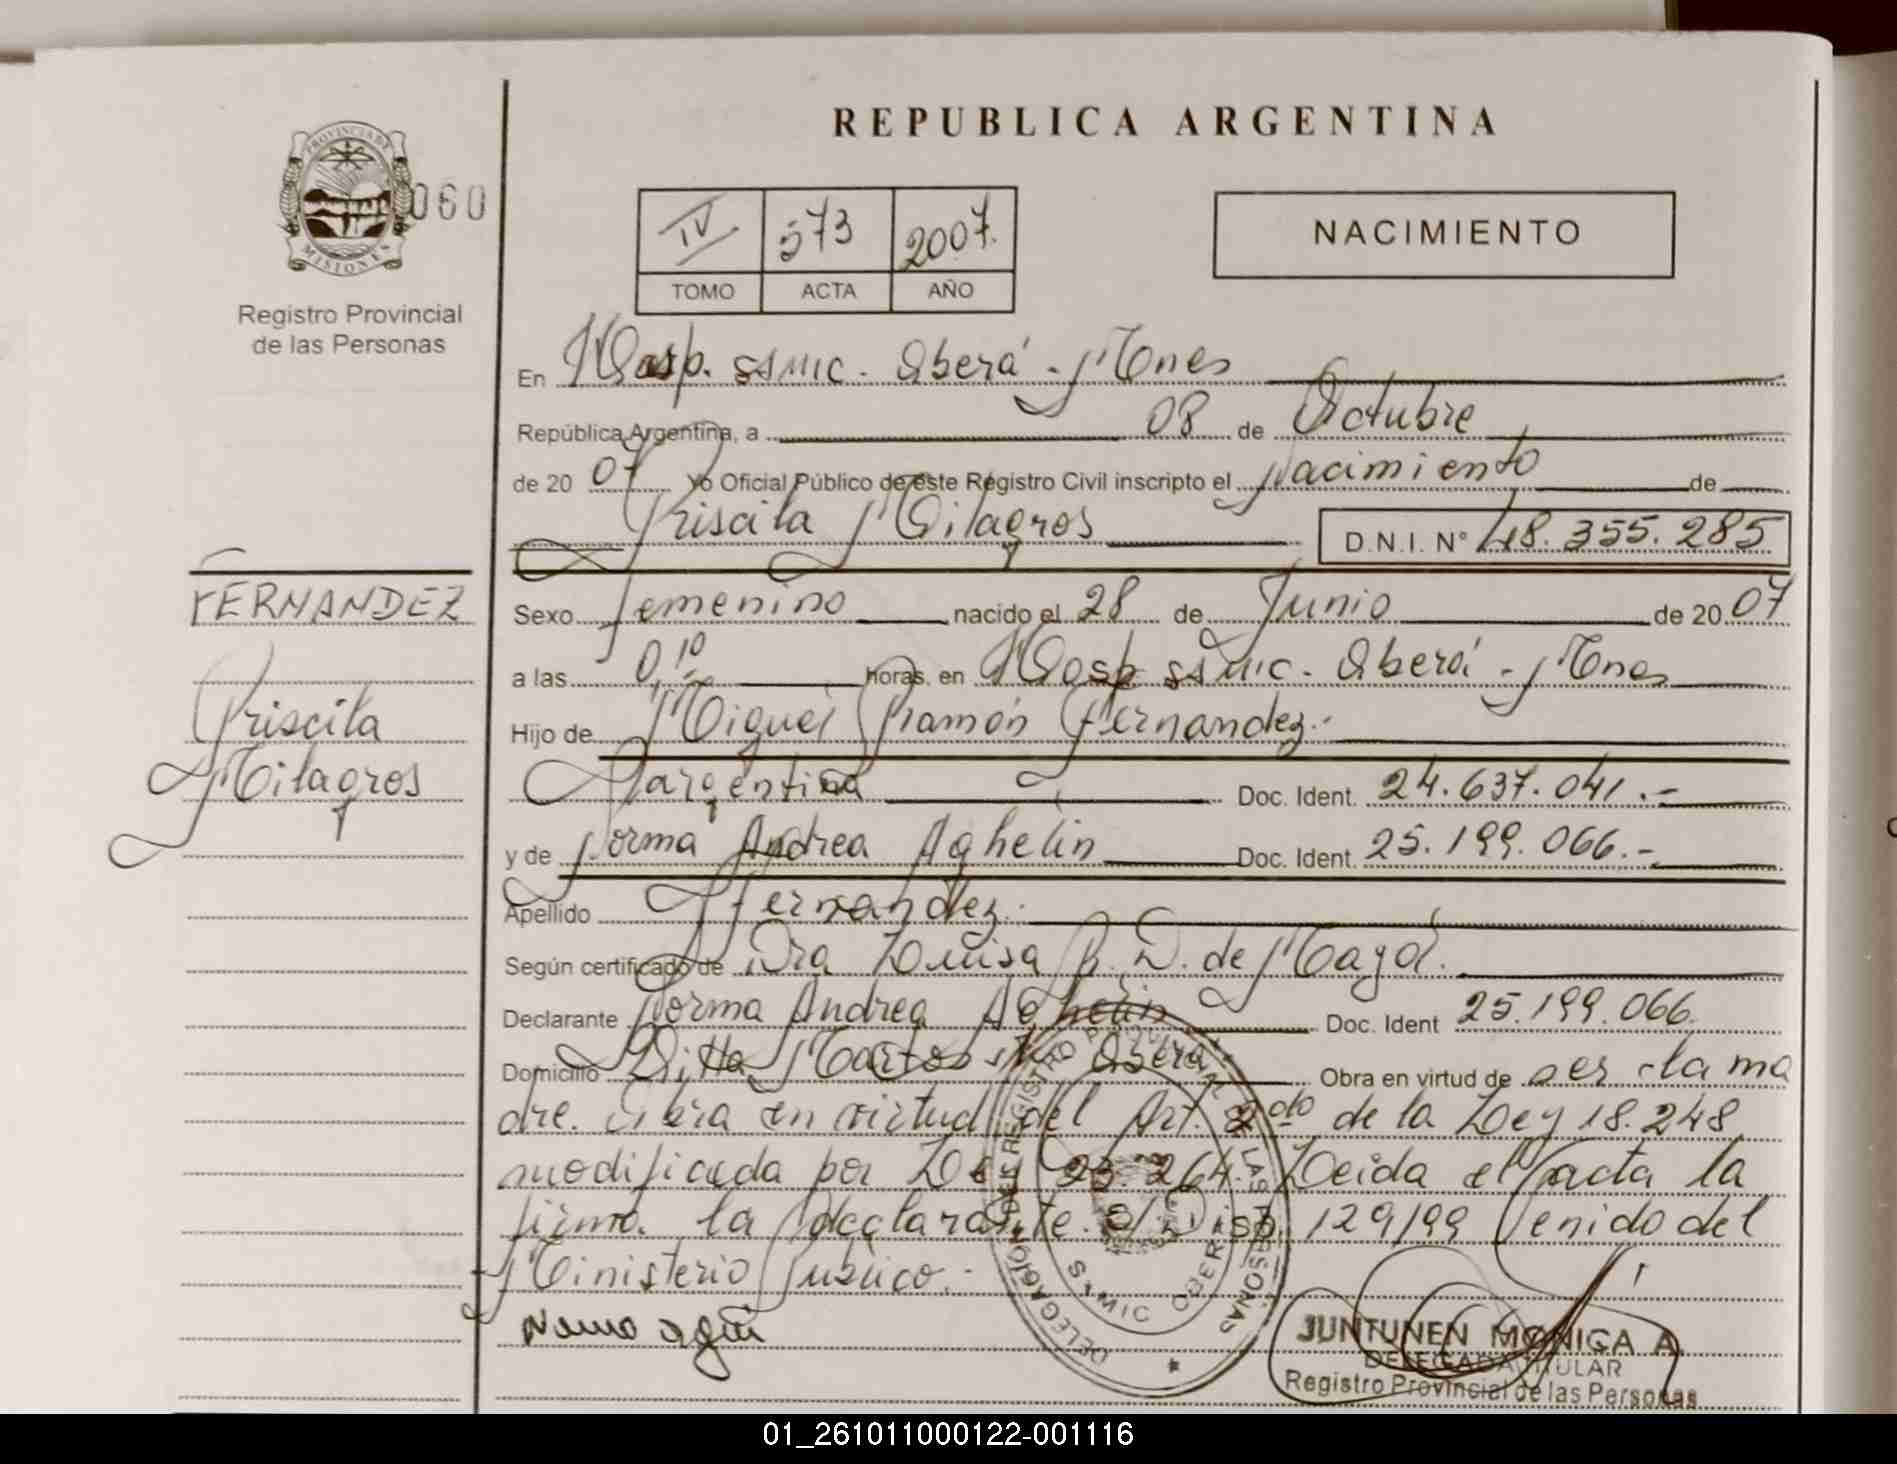 REPUBLICA ARGENTINA
PROVINCIA DE
MISIONES
060
Registro Provincial
de las Personas
IV 573 2007.
TOMO ACTA AÑO
NACIMIENTO
En Hosp. SAMIC. Oberá - Mnes
República Argentina, a 08 de Octubre
de 20 07 Yo Oficial Público de este Registro Civil inscripto el Nacimiento de
Priscila Milagros D.N.I. N° 48.355.285
FERNANDEZ
Priscila
Milagros
Sexo Femenino nacido el 28 de Junio de 20 07
a las 0,10 horas. en Hosp SAMIC. Oberá - Mnes
Hijo de Miguel Ramón Fernandez.-
Argentina Doc. Ident. 24.637.041.-
y de Norma Andrea Aghelin Doc. Ident. 25.199.066.-
Apellido Fernandez.
Según certificado de Dra Luisa R. D. de Mayol.
Declarante Norma Andrea Aghelin Doc. Ident 25.199.066.
Domicilio Villa Martos Oberá Obra en virtud de ser la ma
dre. Obra en virtud del Art. 2do de la Ley 18.248
modificada por Ley 23.264. Leida el acta la
firma la declarante. S/Disp. 129/99 Venido del
Ministerio Publico.-
DELEGACIÓN DEL REGISTRO PROVINCIAL DE LAS PERSONAS
SAMIC OBERA
JUNTUNEN MONICA A.
DELEGADA TITULAR
Registro Provincial de las Personas
01_261011000122-001116